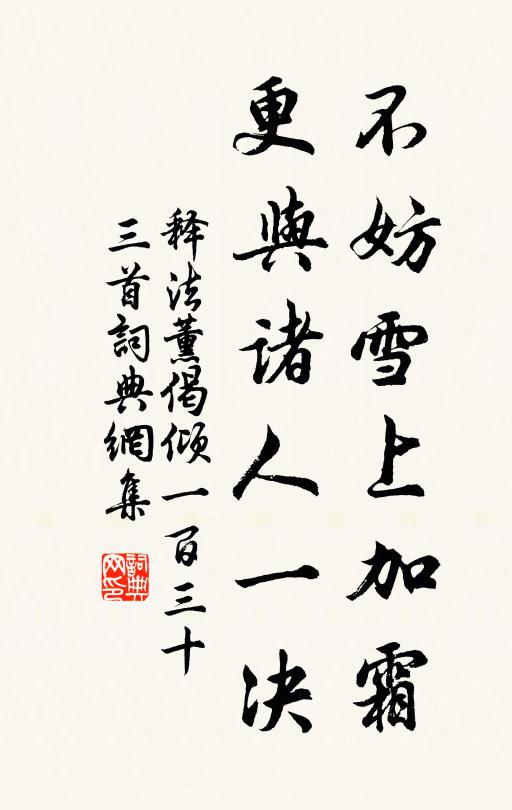 不妨雪上加霜
更與诸人一决
释法薰偈倾一百三十
三首詞典網集
詞典网印